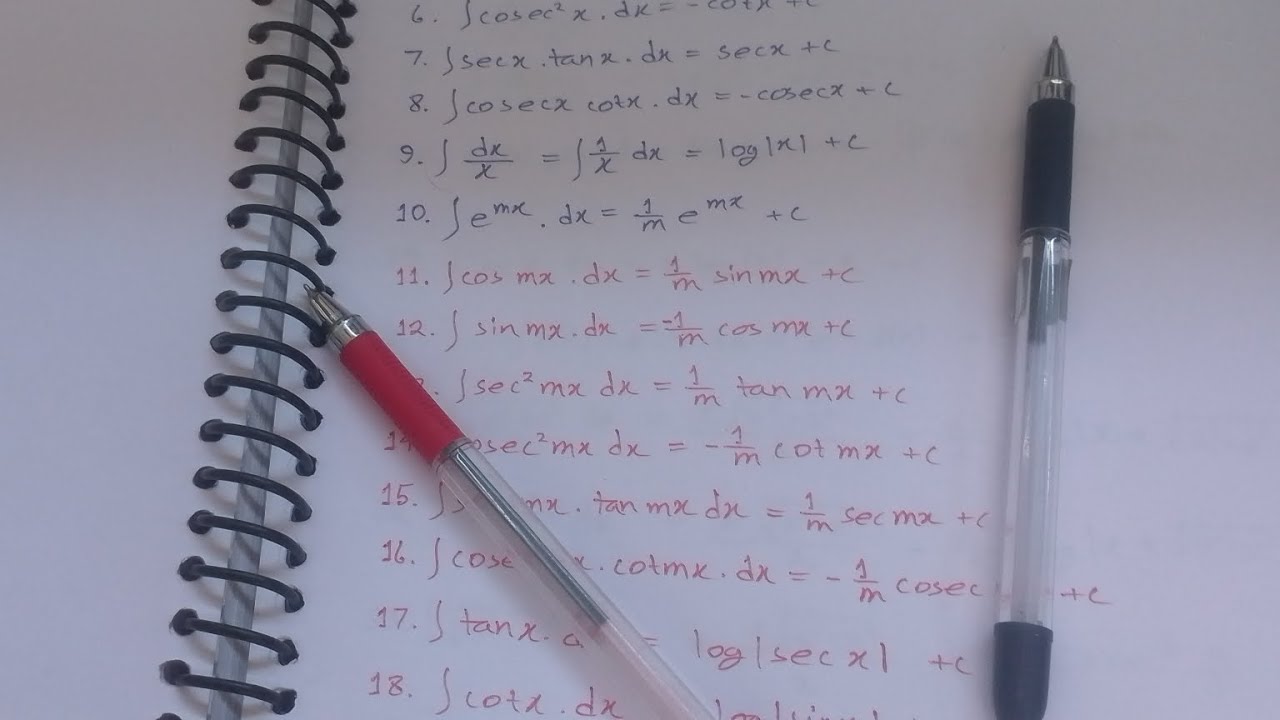 6. ∫cosec²x . dx = -cotx + c
7. ∫secx . tanx . dx = secx + c
8. ∫cosecx cotx . dx = -cosecx + c
9. ∫ dx/x = ∫ 1/x dx = log|x| + c
10. ∫e^mx . dx = 1/m e^mx + c
11. ∫cos mx . dx = 1/m sin mx + c
12. ∫ sin mx . dx = -1/m cos mx + c
∫sec² mx dx = 1/m tan mx + c
mx dx = -1/m cot mx + c
15. ∫ mx . tan mx dx = 1/m sec mx + c
16. ∫ . cot mx . dx = - 1/m cosec + c
17. ∫ tanx . = log|sec x| + c
18. ∫cotx . dx